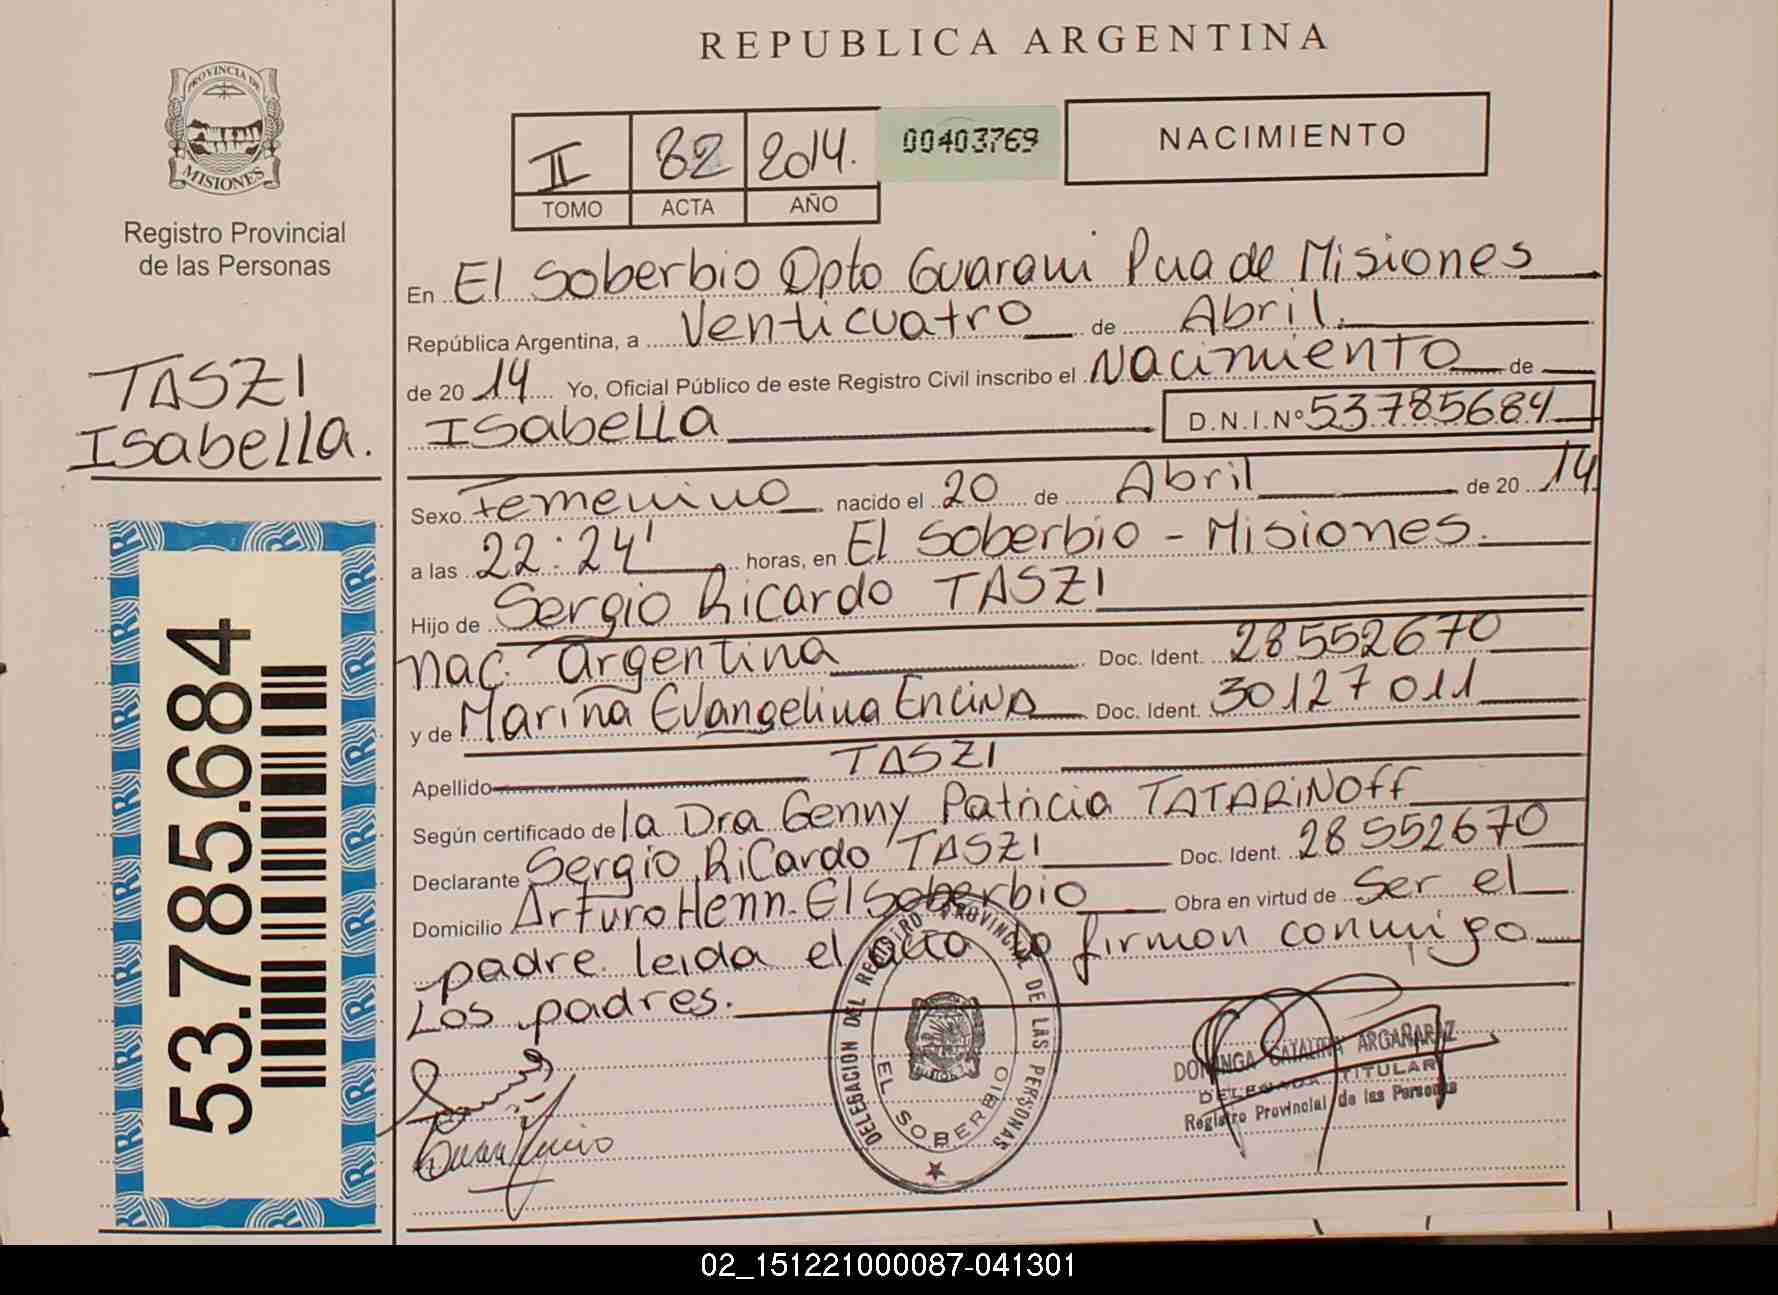 REPUBLICA ARGENTINA
PROVINCIA DE
MISIONES
Registro Provincial
de las Personas
II 82 2014. 00403769 NACIMIENTO
TOMO ACTA AÑO
En El Soberbio Dpto Guarani Pcia de Misiones
República Argentina, a Venticuatro de Abril.
de 20 14 Yo, Oficial Público de este Registro Civil inscribo el Nacimiento de
Isabella D.N.I.Nº 53785684
TASZI
Isabella.
Sexo Femenino nacido el 20 de Abril de 20 14
a las 22:24' horas, en El Soberbio - Misiones.
Hijo de Sergio Ricardo TASZI
nac. argentina Doc. Ident. 28552670
y de Marina Evangelina Encina Doc. Ident. 30127011
Apellido TASZI
Según certificado de la Dra Genny Patricia TATARINOFF
Declarante Sergio Ricardo TASZI Doc. Ident. 28552670
Domicilio Arturo Henn. El Soberbio Obra en virtud de Ser el
padre. leida el acta la firman conmigo
Los padres.
53.785.684
DELEGACION DEL REGISTRO PROVINCIAL DE LAS PERSONAS
EL SOBERBIO
DOMINGA CATALINA ARGAÑARAZ
DELEGADA TITULAR
Registro Provincial de las Personas
02_151221000087-041301